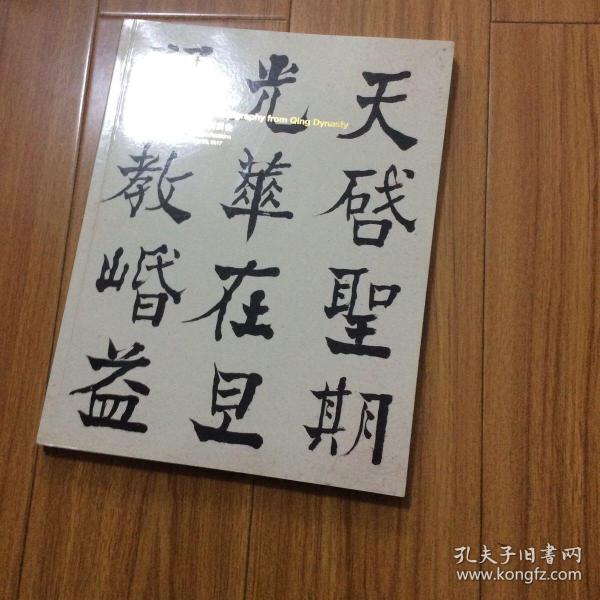 天啓聖期
光華在旦
教㬰益
graphy from Qing Dynasty
2017
孔夫子旧书网
www.kongfz.com